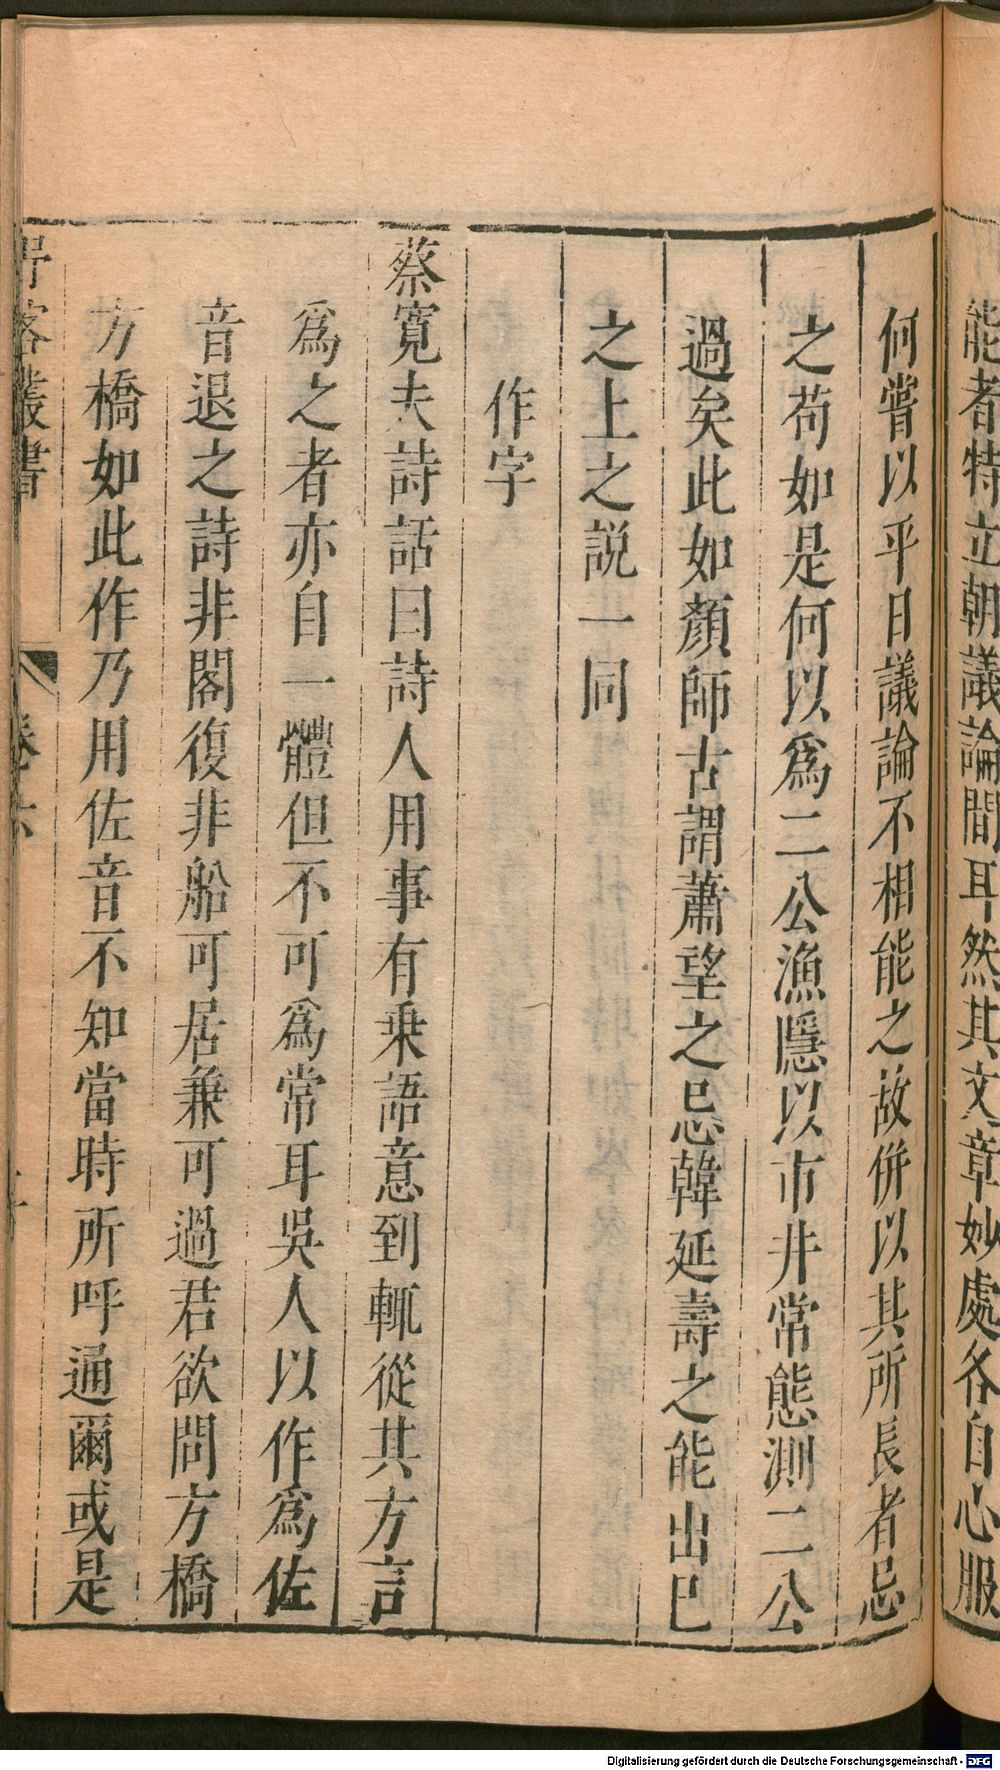 能者特立朝議論間耳然其文章妙處各自心服
何嘗以平日議論不相能之故併以其所長者忌
之苟如是何以爲二公漁隱以市井常態測二公
過矣此如顏師古謂蕭望之忌韓延壽之能出已
之上之説一同
作字
蔡寬夫詩話曰詩人用事有乗語意到輒從其方言
爲之者亦自一體但不可爲常耳吳人以作爲佐
音退之詩非閣復非船可居兼可過君欲問方橋
方橋如此作乃用佐音不知當時所呼通爾或是
野客叢書 卷六
Digitalisierung gefördert durch die Deutsche Forschungsgemeinschaft - DFG